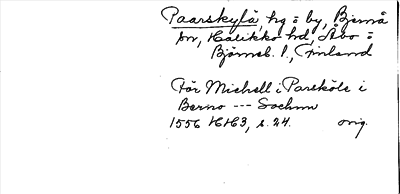 Paarskylä, hg = by, Bjernå
sn, Halikko hd, Åbo =
Björneb. l., Finland
För Michell i Parsköle i
Berno --- Sochnn
1556 HH3, s. 24. orig.